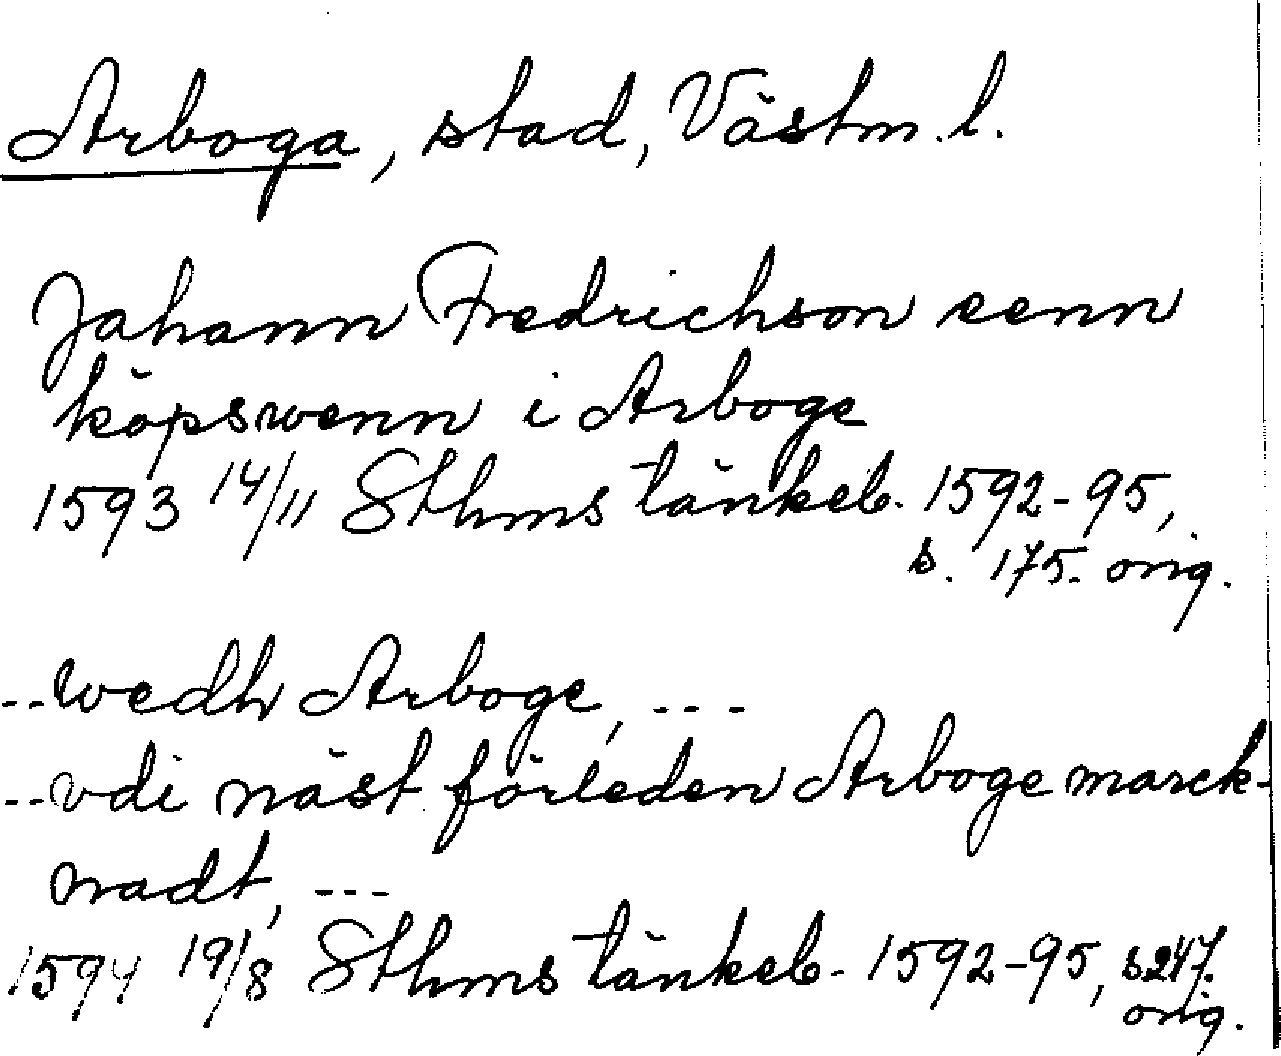 Arboga, stad, Västm. l.
Jahann Fredrichson eenn
köpswenn i Arboge
1593 14/11 Sthms tänkeb. 1592-95,
s. 175. orig.
--wedh Arboge, ---
--vdi näst förleden Arboge marck-
nadt, ---
1594 19/8 Sthms tänkeb. 1592-95, s. 247.
orig.